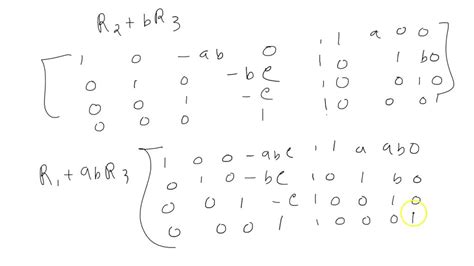 R2 + bR3
1 0 -ab 0 | 1 a 0 0
0 1 0 -bc | 0 1 b 0
0 0 1 -c | 0 0 1 0
0 0 0 1 | 0 0 0 1
R1 + abR3
1 0 0 -abc | 1 a ab 0
0 1 0 -bc | 0 1 b 0
0 0 1 -c | 0 0 1 0
0 0 0 1 | 0 0 0 1